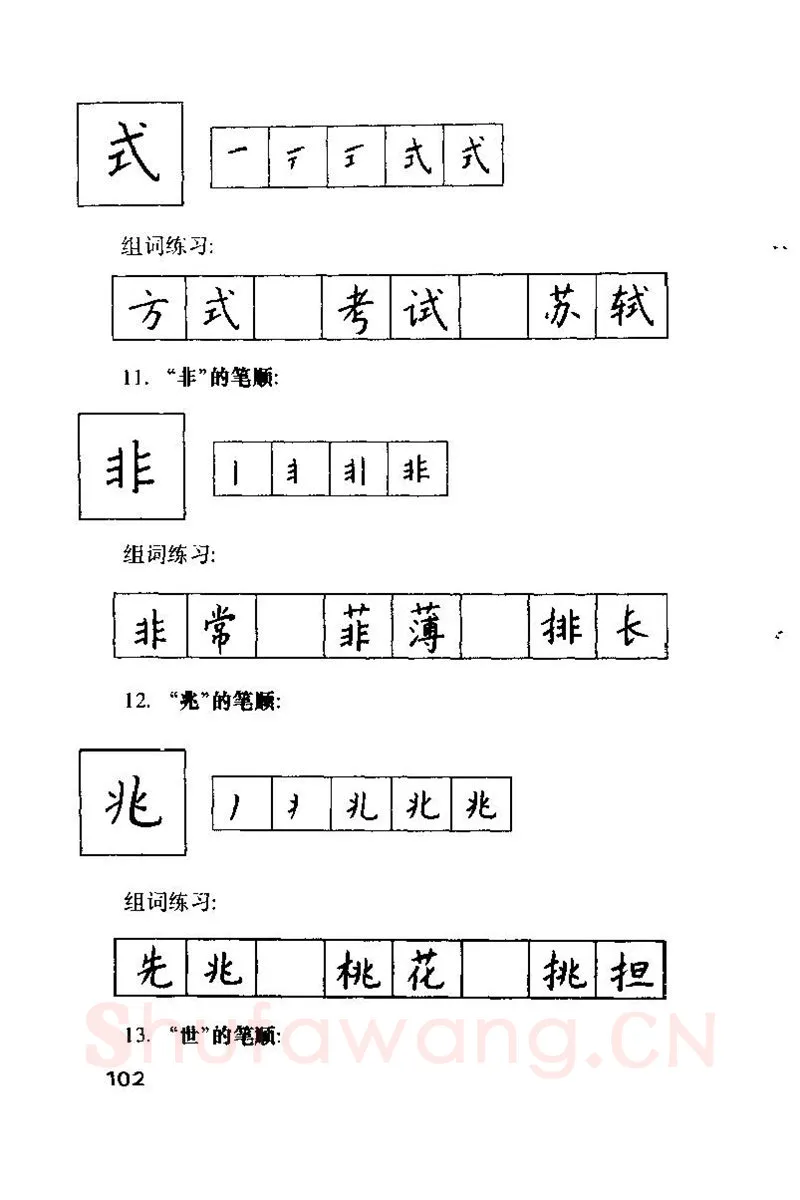 式 一 二 工 式 式
组词练习:
方式 考试 苏轼
11. “非”的笔顺:
非
组词练习:
非常 菲薄 排长
12. “兆”的笔顺:
兆 兆 兆
组词练习:
先兆 桃花 挑担
13. “世”的笔顺:
102
Shufawang.CN